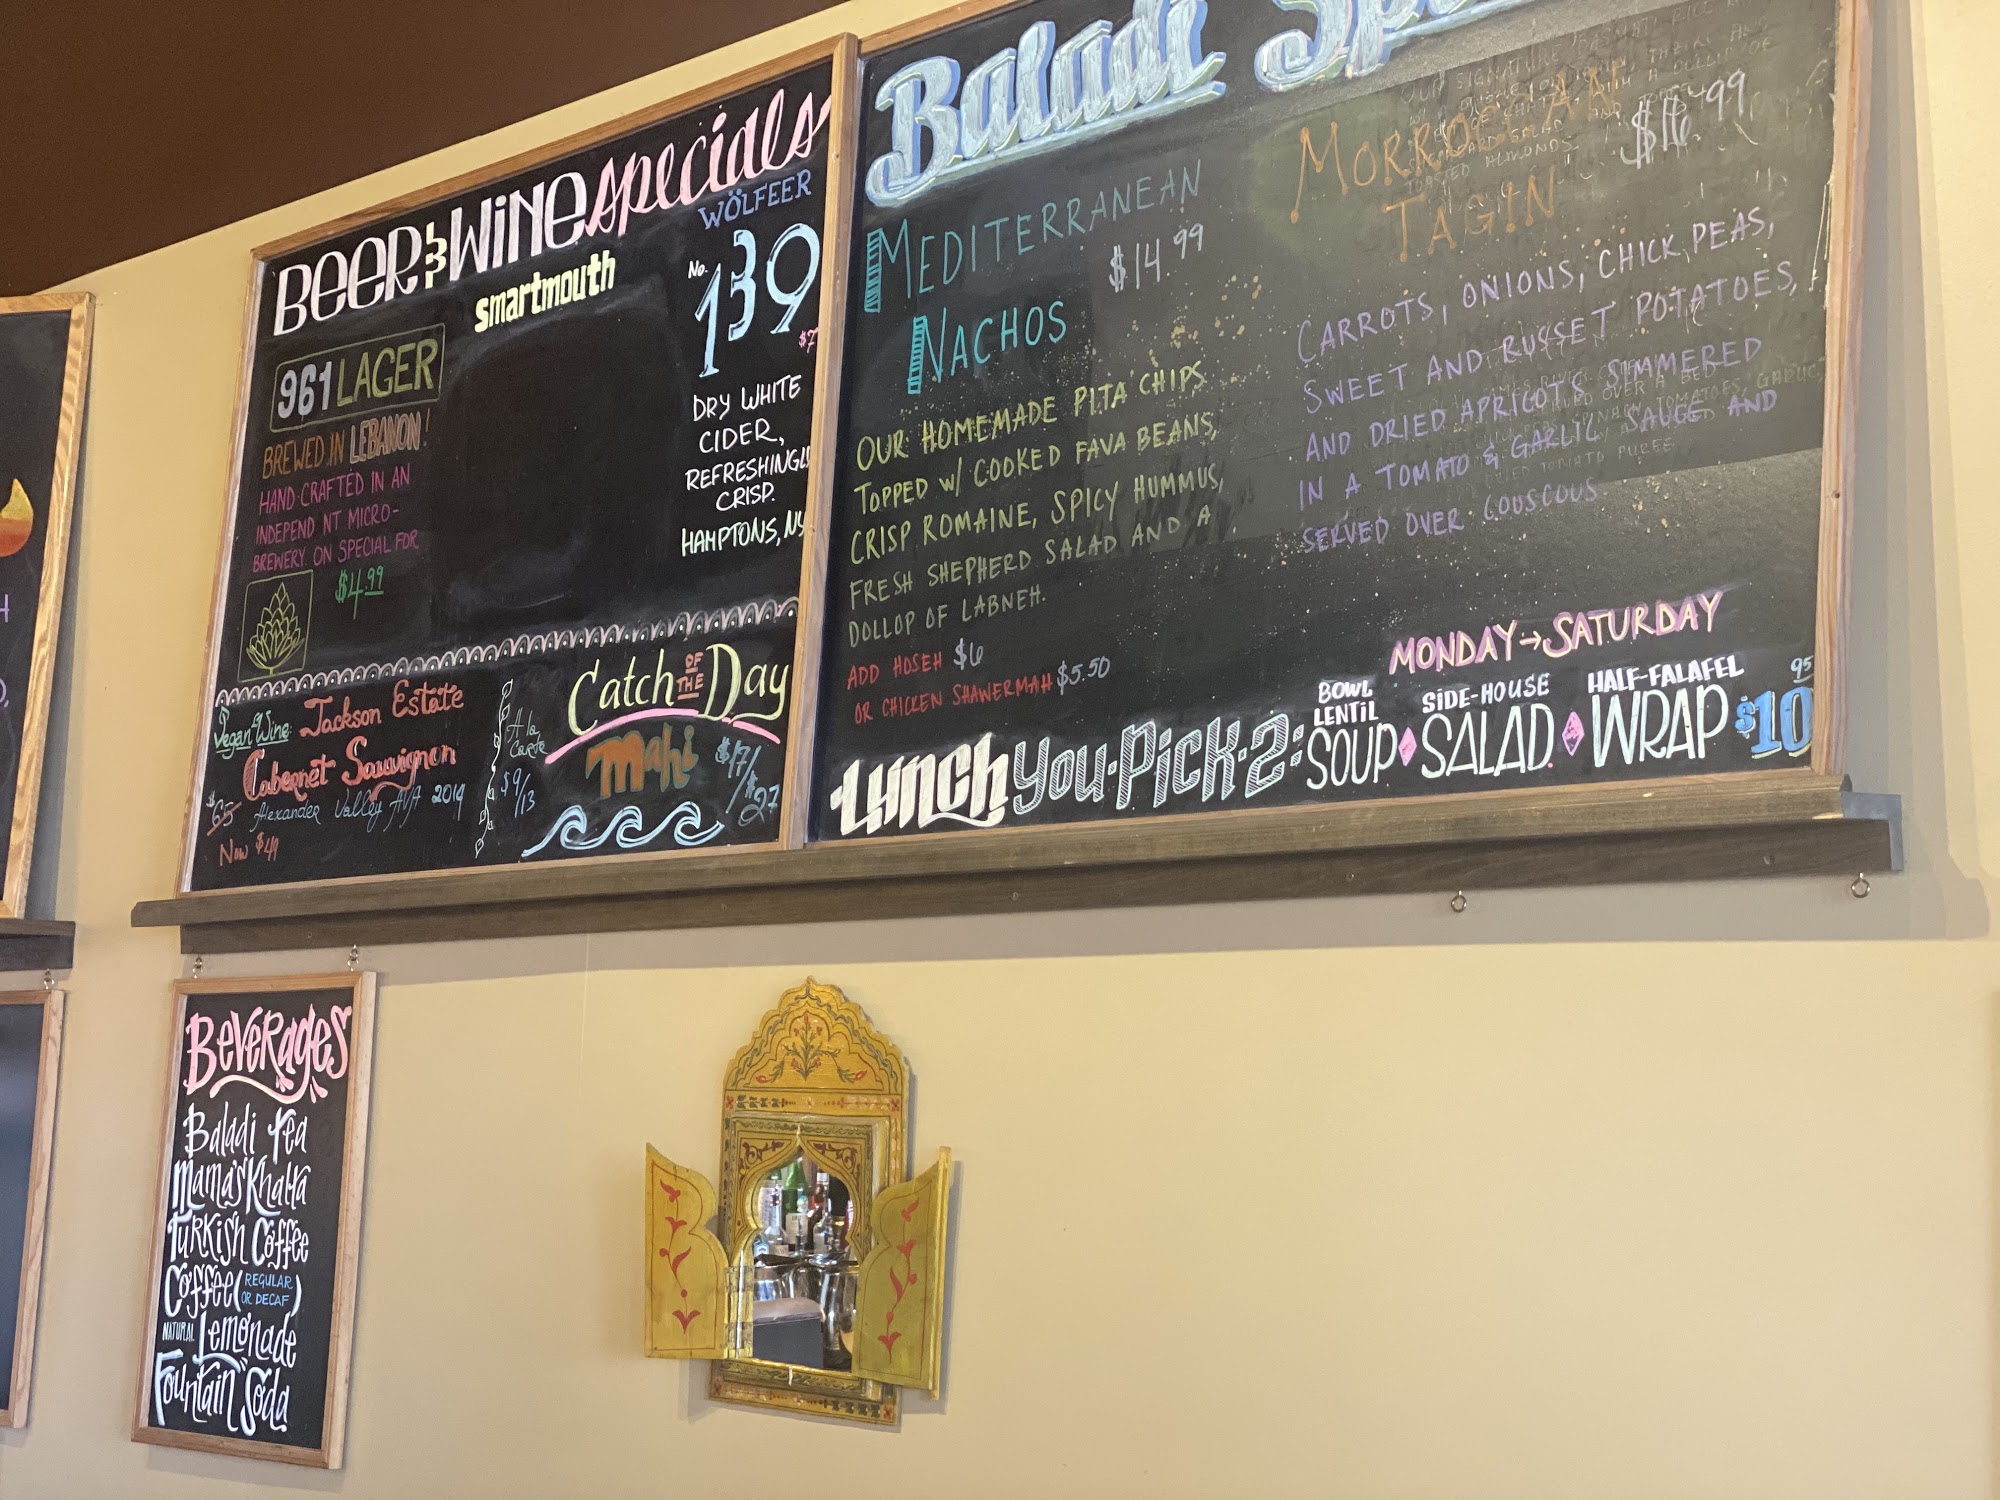 BEER & WINE specials
961 LAGER
BREWED IN LEBANON!
HAND-CRAFTED IN AN
INDEPEND NT MICRO-
BREWERY. ON SPECIAL FOR
$4.99
smartmouth
WÖLFFER
No. 139
$7
DRY WHITE
CIDER,
REFRESHINGLY
CRISP.
HAMPTONS, NY
Vegan Wine: Jackson Estate
Cabernet Sauvignon
$65 Alexander Valley AVA 2019
Now $49
A la
Carte
$9/13
Catch OF THE Day
Mahi $17/$27
Baladi
MEDITERRANEAN
NACHOS $14.99
OUR HOMEMADE PITA CHIPS
TOPPED W/ COOKED FAVA BEANS,
CRISP ROMAINE, SPICY HUMMUS,
FRESH SHEPHERD SALAD AND A
DOLLOP OF LABNEH.
ADD HOSEH $6
OR CHICKEN SHAWERMAH $5.50
MORROCCAN $16.99
TAGIN
CARROTS, ONIONS, CHICK PEAS,
SWEET AND RUSSET POTATOES,
AND DRIED APRICOTS SIMMERED
IN A TOMATO & GARLIC SAUCE AND
SERVED OVER COUSCOUS
MONDAY→SATURDAY
Lunch You-Pick-2:
BOWL
LENTIL
SOUP
SIDE-HOUSE
SALAD
HALF-FALAFEL
WRAP
$10 95
Beverages
Baladi Tea
Mama's Khalta
Turkish Coffee
Coffee (REGULAR OR DECAF)
NATURAL Lemonade
Fountain Soda